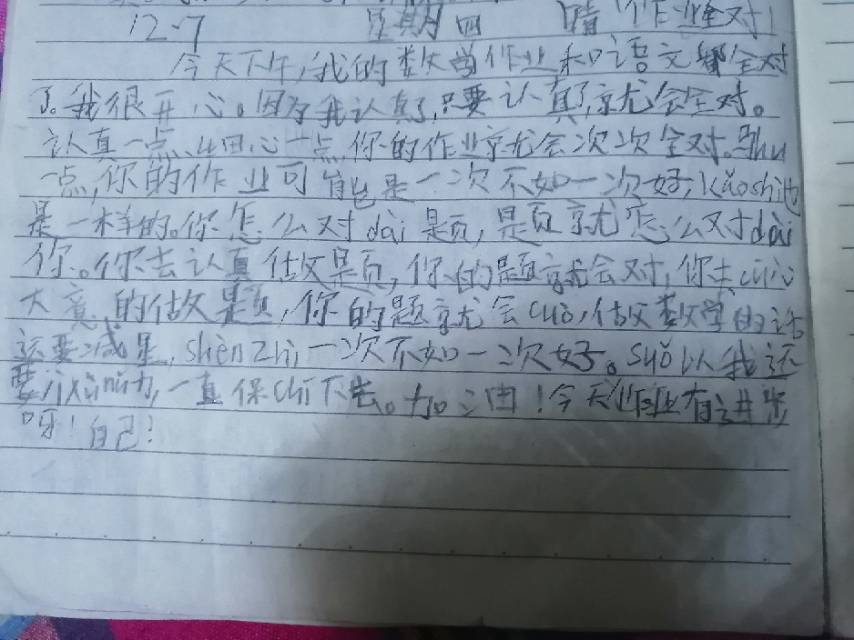 12.7 星期四 晴 作业全对!
今天下午,我的数学作业和语文都全对
了。我很开心。因为我认真了,只要认真了,就会全对。
认真一点、细心一点,你的作业就会次次全对。
一点,你的作业可能是一次不如一次好,kǎoshì也
是一样的。你怎么对dài题,题就怎么对dài
你。你去认真做题,你的题就会对,你去cūxīn
大意的做题,你的题就会cuò,做数学的话
还要减星,shènzhì,一次不如一次好。suǒ以我还
要 一直保chí下去。加油!今天作业有进步
呀!自己!